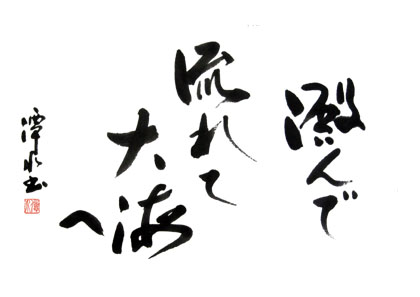 澱んで
流れて
大海へ
潭水書